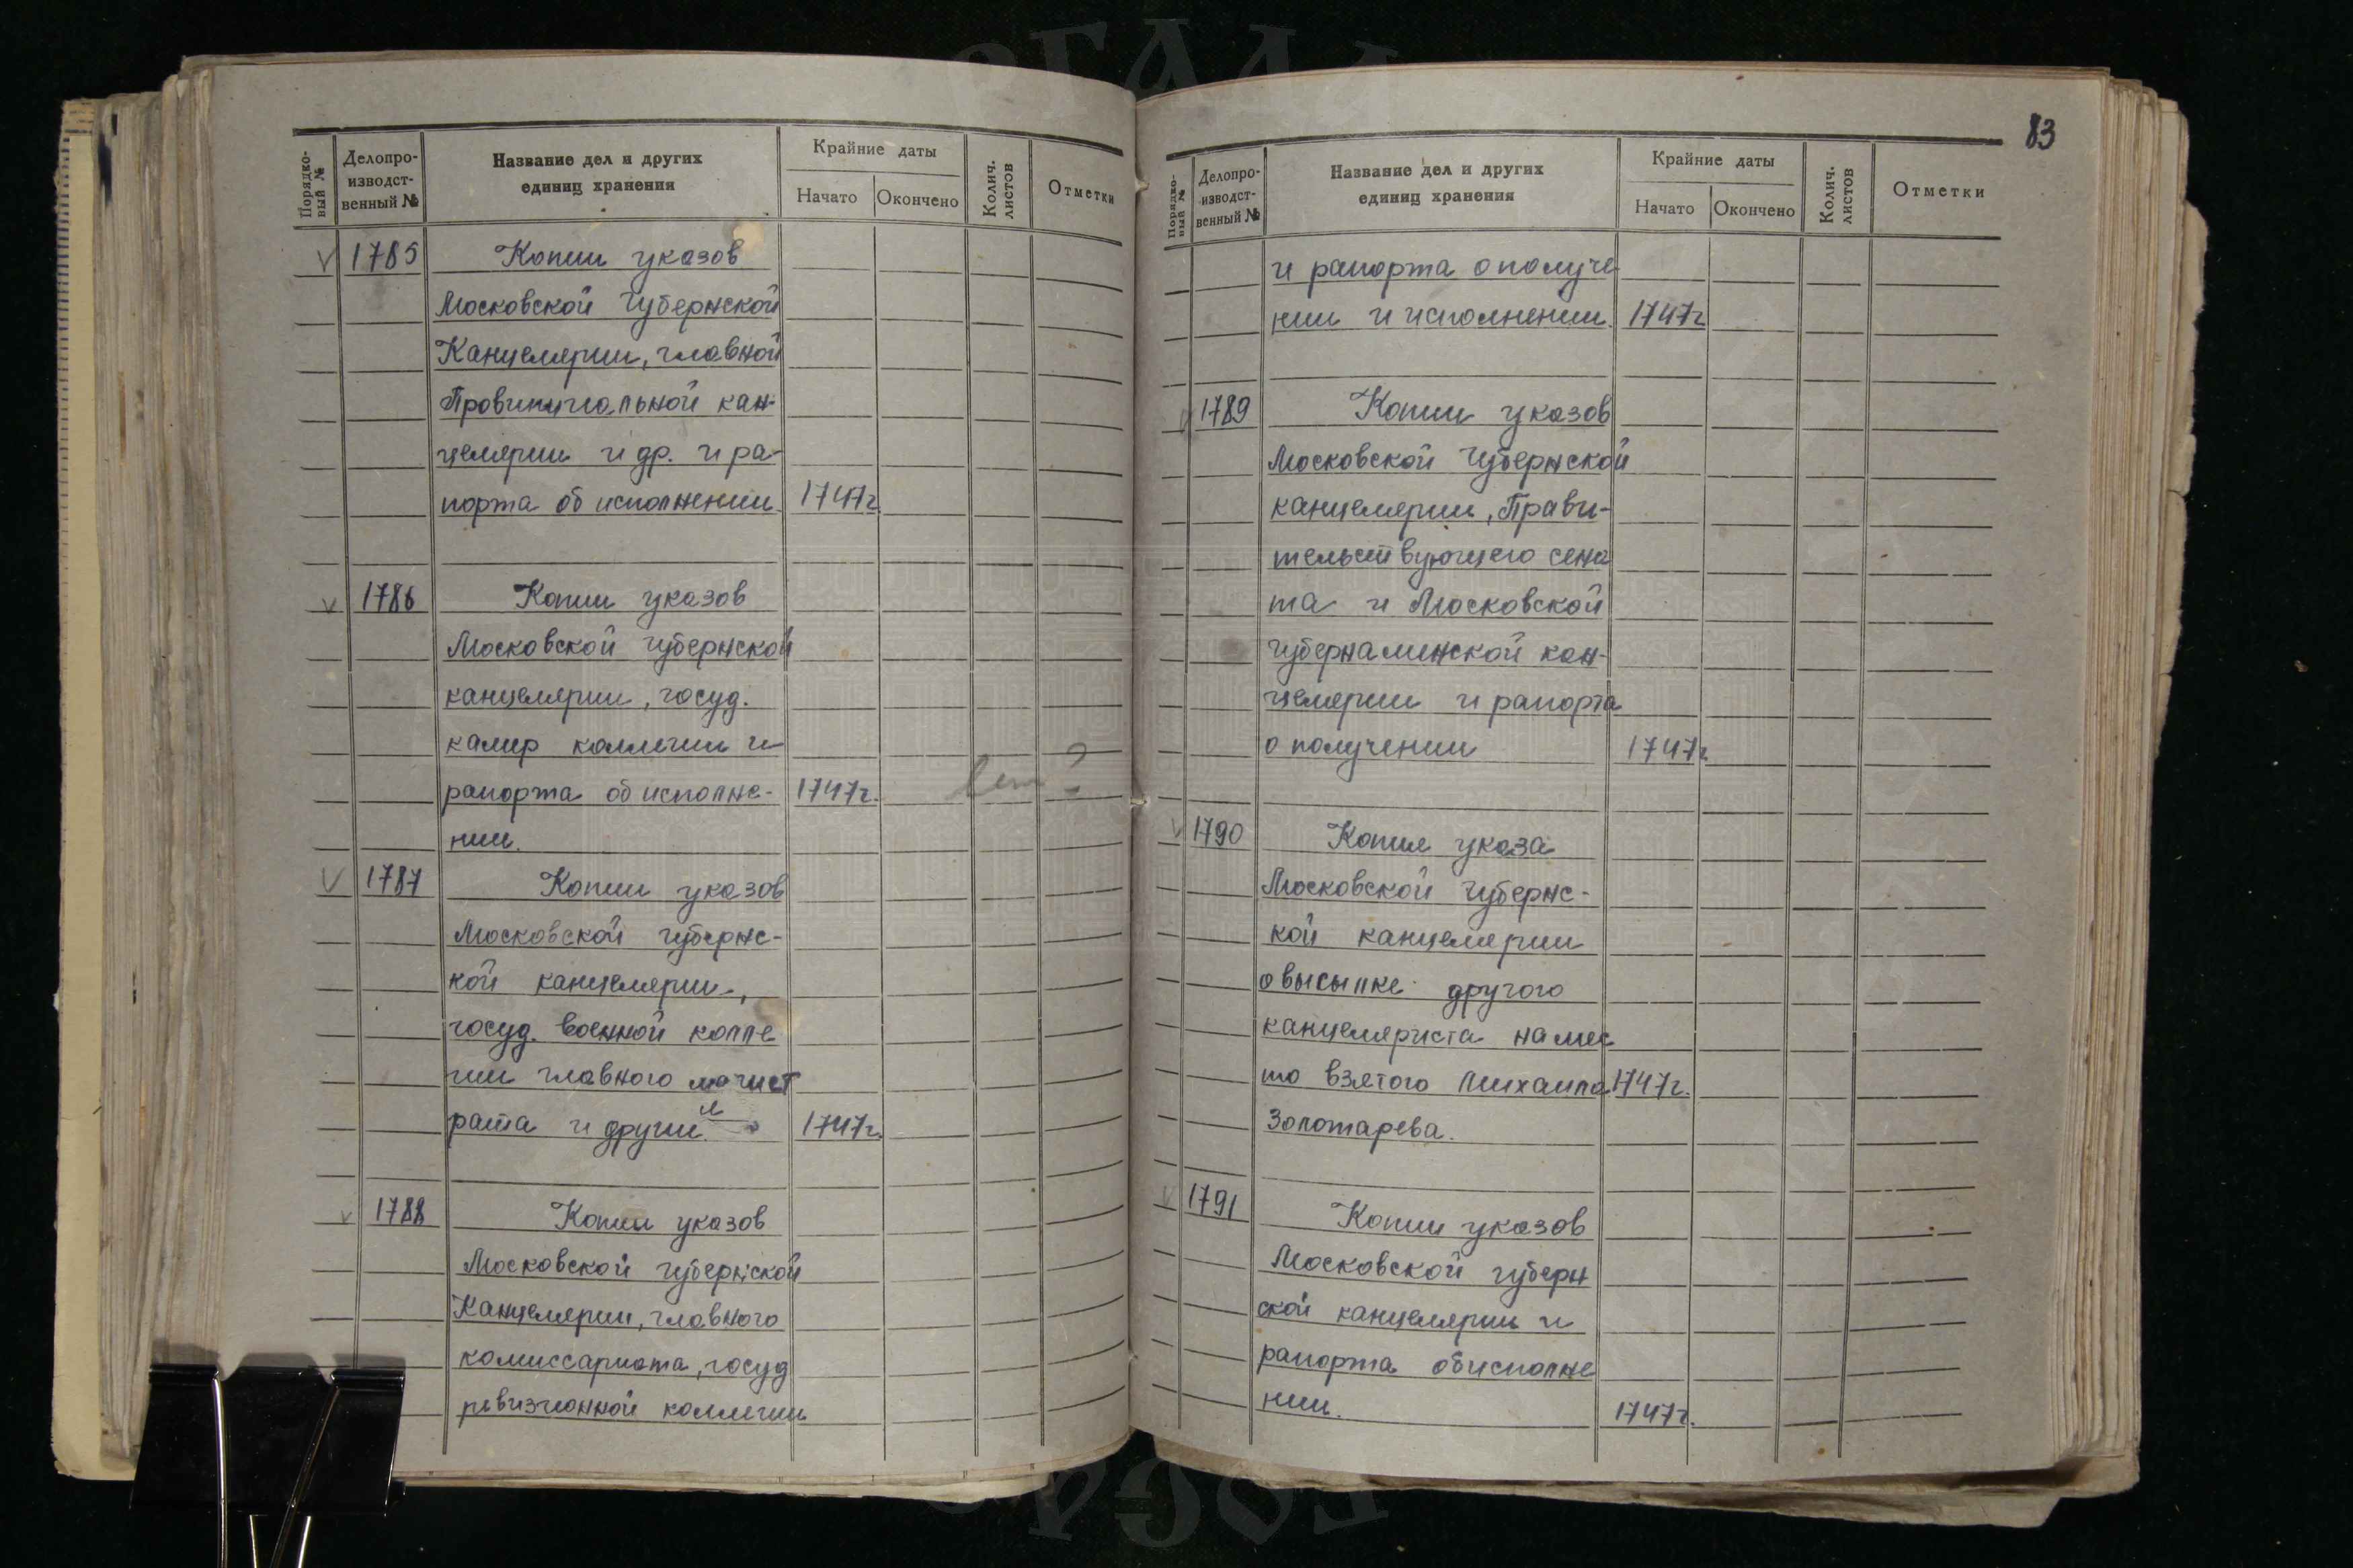 Порядко-
вый №
Делопро-
изводст-
венный №
Название дел и других
единиц хранения
Крайние даты
Начато
Окончено
Колич.
листов
Отметки
V 1785 Копии указов
Московской Губернской
Канцелярии, главной
Провинциальной кан-
целярии и др. и ра-
порта об исполнении. 1747г.
V 1786 Копии указов
Московской губернской
канцелярии, госуд.
камер коллегии и
рапорта об исполне- 1747г.
нии.
V 1787 Копии указов
Московской губернс-
кой канцелярии,
госуд. военной колле
гии главного магист
рата и других 1747г.
V 1788 Копии указов
Московской губернской
Канцелярии, главного
комиссариата, госуд
ревизионной коллегии
83
Порядко-
вый №
Делопро-
изводст-
венный №
Название дел и других
единиц хранения
Крайние даты
Начато
Окончено
Колич.
листов
Отметки
и рапорта о получе
нии и исполнении. 1747г
V 1789 Копии указов
Московской Губернской
канцелярии, Прави-
тельствующего сена
та и Московской
губернаминской кан-
целярии и рапорта
о получении 1747г.
V 1790 Копия указа
Московской Губернс-
кой канцелярии
о высылке другого
канцеляриста на мес
то взятого Михаила 1747г.
Золотарева.
V 1791 Копии указов
Московской губерн
ской канцелярии и
рапорта об исполне
нии. 1747г.